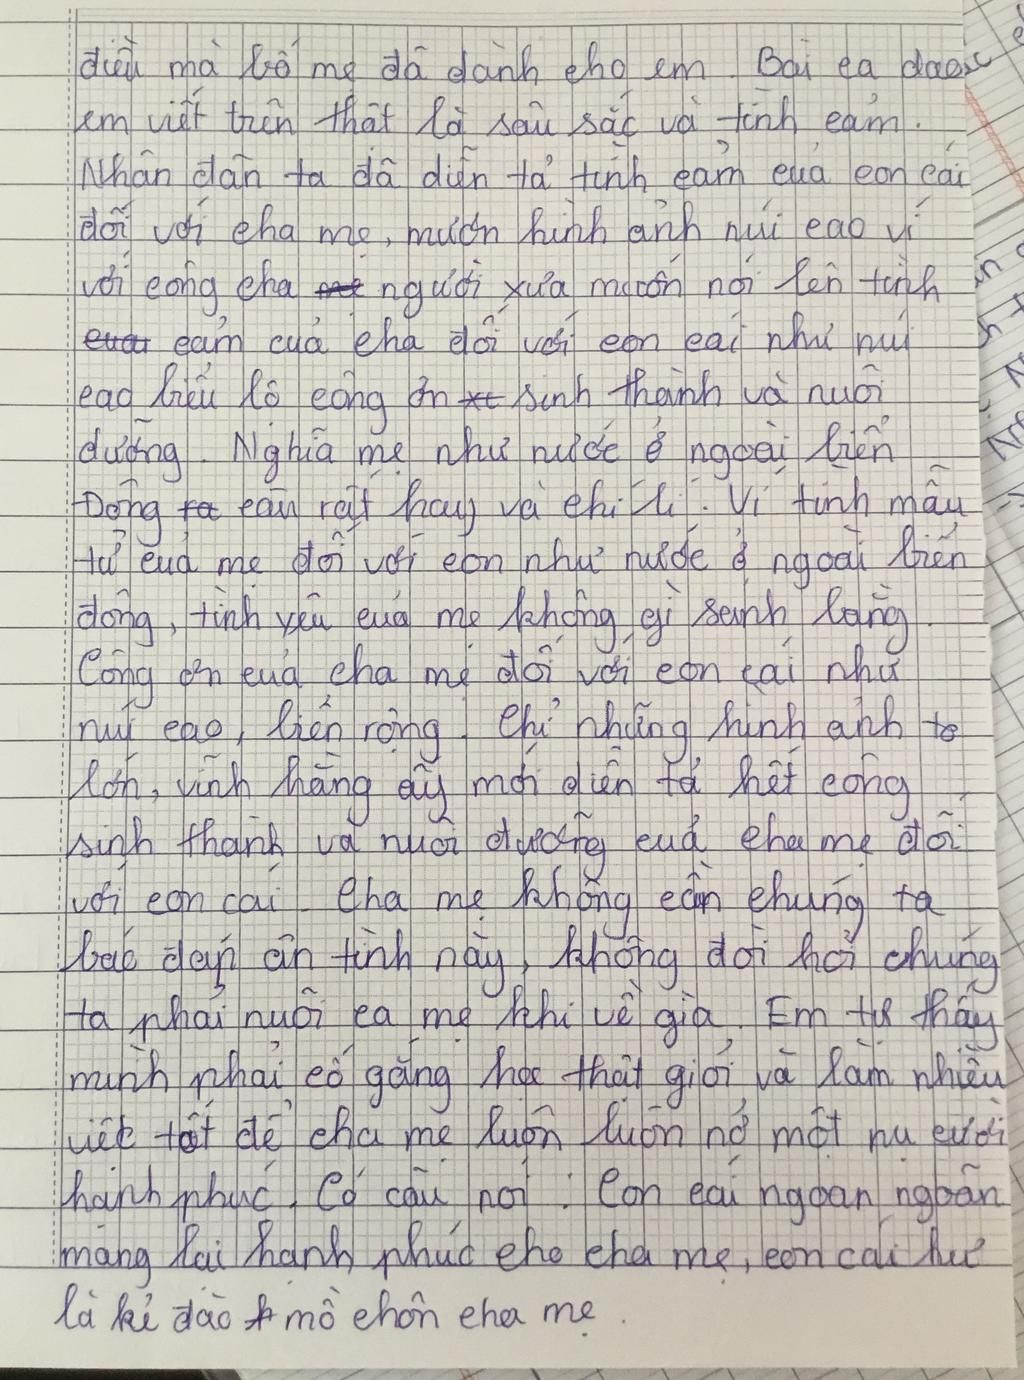 điều mà bố mẹ đã dành cho em. Bài ca dao
em viết trên thật là sâu sắc và tình cảm.
Nhân dân ta đã diễn tả tình cảm của con cái
đối với cha mẹ, mượn hình ảnh núi cao ví
với công cha người xưa muốn nói lên tình
cảm của cha đối với con cái như núi
cao biểu lộ công ơn sinh thành và nuôi
dưỡng. Nghĩa mẹ như nước ở ngoài biển
Đông câu rất hay và chí lí. Ví tình mẫu
tử của mẹ đối với con như nước ở ngoài biển
đông, tình yêu của mẹ không gì sánh bằng.
Công ơn của cha mẹ đối với con cái như
núi cao, biển rộng. Chỉ những hình ảnh to
lớn, vĩnh hằng ấy mới diễn tả hết công
sinh thành và nuôi dưỡng của cha mẹ đối
với con cái. Cha mẹ không cần chúng ta
báo đáp ân tình này, không đòi hỏi chúng
ta phải nuôi ca mẹ khi về già. Em tự thấy
mình phải cố gắng học thật giỏi và làm nhiều
việc tốt để cha mẹ luôn luôn nở một nụ cười
hạnh phúc. Có câu nói: Con cái ngoan ngoãn
mang lại hạnh phúc cho cha mẹ, con cái hư
là kẻ đào mồ chôn cha mẹ.